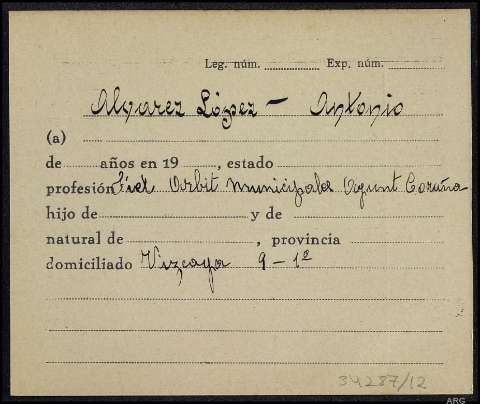 Leg. núm. Exp. núm.
Alvarez López - Antonio
(a)
de años en 19 , estado
profesión Fiel Arbit municipales Ayunt Coruña
hijo de y de
natural de , provincia
domiciliado Vizcaya 9 - 1º
34287/12
ARG